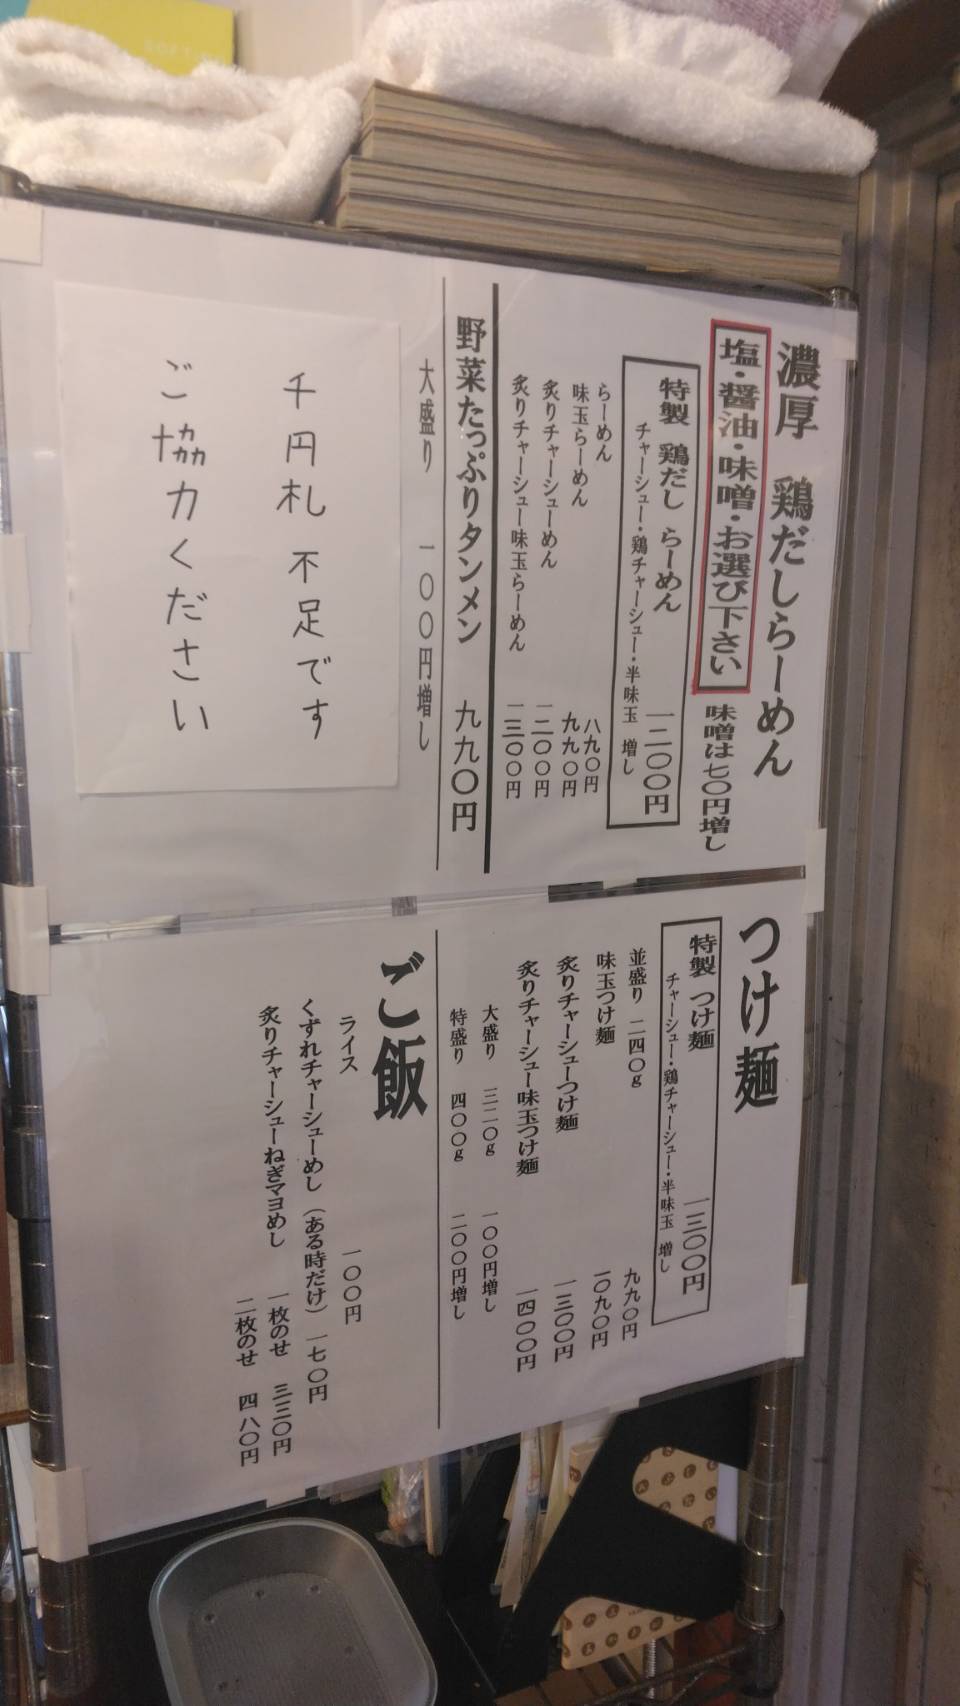 濃厚 鶏だしらーめん
塩・醤油・味噌・お選び下さい 味噌は七〇円増し
特製 鶏だし らーめん 一二〇〇円
チャーシュー・鶏チャーシュー・半味玉 増し
らーめん 八九〇円
味玉らーめん 九九〇円
炙りチャーシューめん 一二〇〇円
炙りチャーシュー味玉らーめん 一三〇〇円
野菜たっぷりタンメン 九九〇円
大盛り 一〇〇円増し
千円札 不足です
ご協力ください
つけ麺
特製 つけ麺 一三〇〇円
チャーシュー・鶏チャーシュー・半味玉 増し
並盛り 二四〇g 九九〇円
味玉つけ麺 一〇九〇円
炙りチャーシューつけ麺 一三〇〇円
炙りチャーシュー味玉つけ麺 一四〇〇円
大盛り 三二〇g 一〇〇円増し
特盛り 四〇〇g 二〇〇円増し
ご飯
ライス 一〇〇円
くずれチャーシューめし（ある時だけ） 一七〇円
炙りチャーシューねぎマヨめし 一枚のせ 三三〇円
二枚のせ 四八〇円